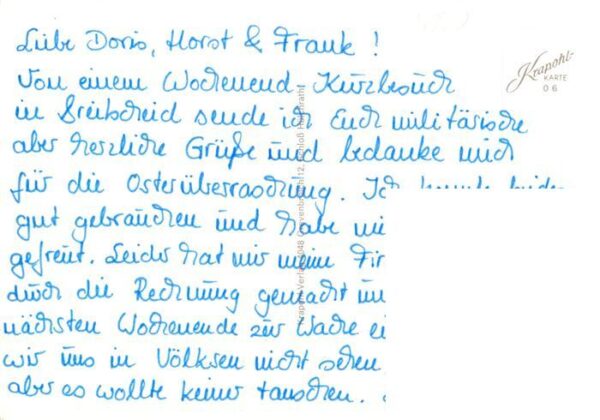 Liebe Doris, Horst & Frank !
Von einem Wochenend Kurzbesuch
in Breitscheid sende ich Euch militärische
aber herzliche Grüße und bedanke mich
für die Osterüberraschung. Ich konnte beides
gut gebrauchen und habe mi
gefreut. Leider hat mir meine Fir
durch die Rechnung gemacht un
nächsten Wochenende zur Wache ei
wir uns in Völksen nicht sehen
aber es wollte keiner tauschen.
Krapohl-
KARTE
06
Krapohl-Verlag, 4048 Grevenbroich 12, Schloß Hülchrath